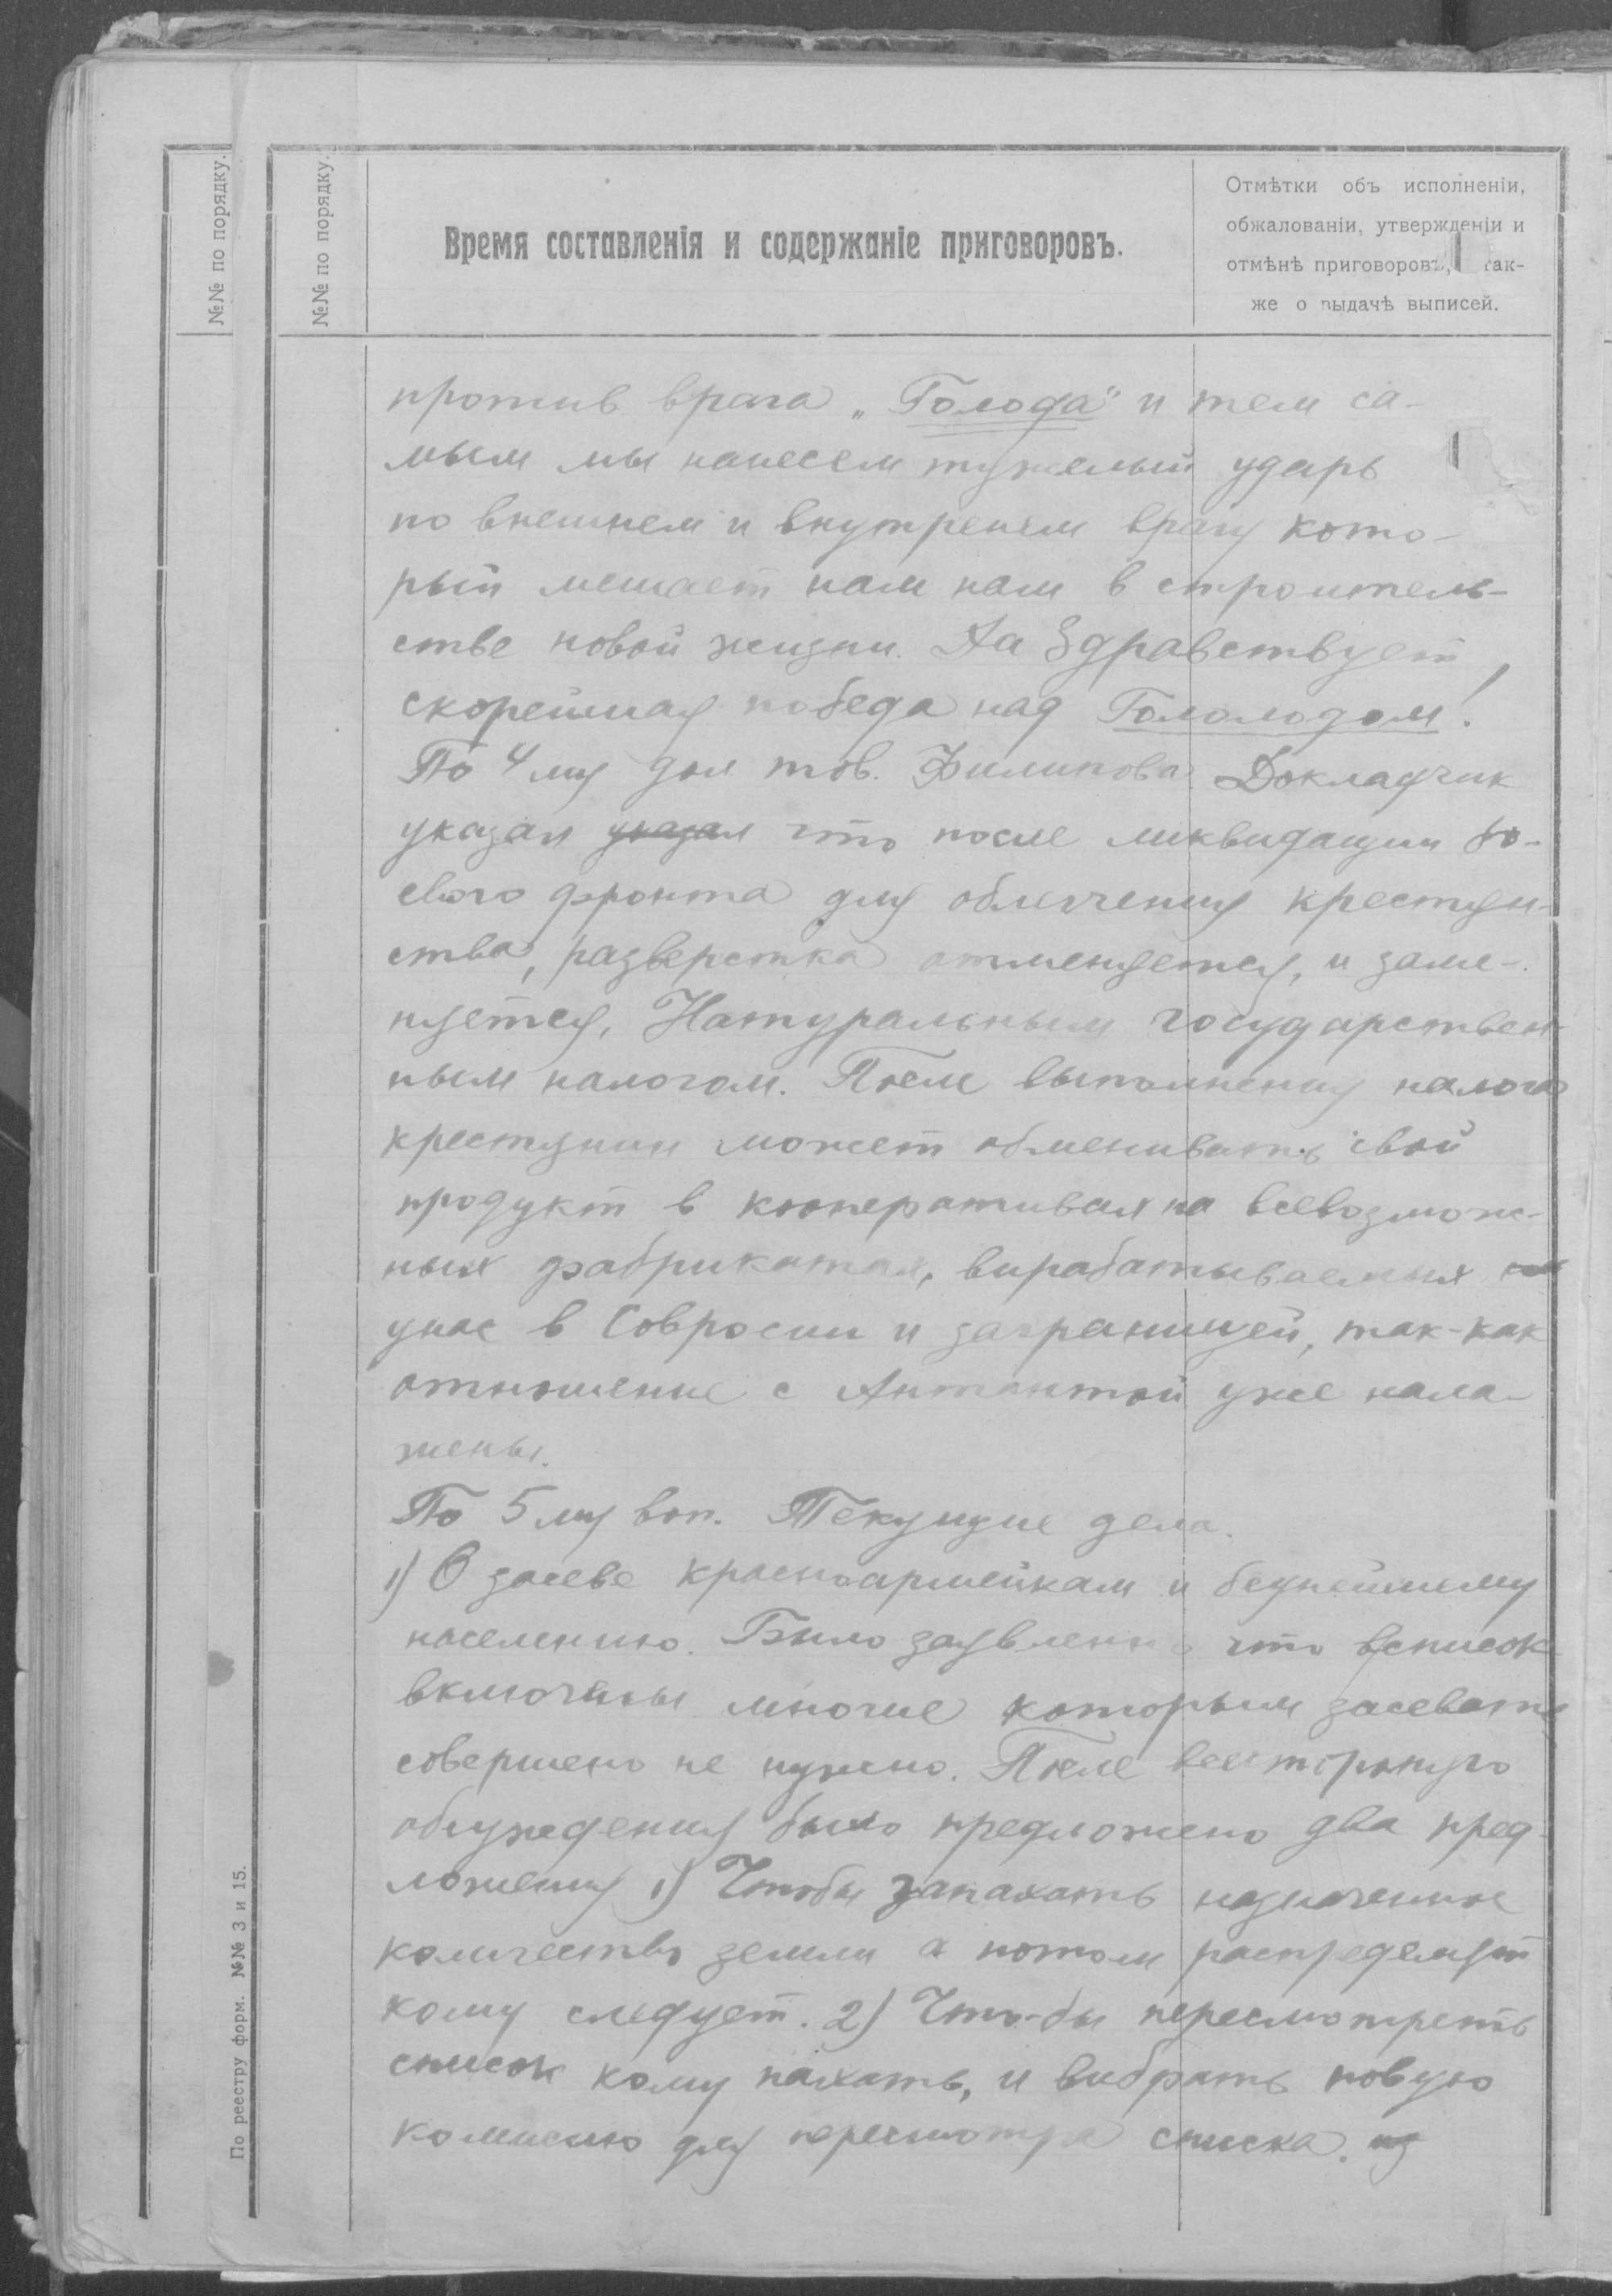 №№ по порядку.
№№ по порядку.
Время составленія и содержаніе приговоровъ.
Отмѣтки объ исполненіи,
обжалованіи, утвержденіи и
отмѣнѣ приговоровъ, так-
же о выдачѣ выписей.
против врага „Голода" и тем са-
мым мы нанесем тяжелый ударь
по внешнем и внутренем врагу кото-
рый мешает нам нам в строитель-
стве новой жизни. Да Здравствует
скорейшая победа над Гололодом!
По 4 му док тов. Филипова Докладчик
указал указал что после ликвидации бо-
евого фронта для облегчения крестьян-
ства, разверстка отменяется, и заме-
няется, Натуральным государствен-
ным налогом. После выполнения налога
крестянин может обменивать свой
продукт в кооперативах на всевозмож-
ных фабрикатах, вирабатываемых
унас в Совросии и заграницей, так-как
отношение с Антантой уже нала-
жены.
По 5 му воп. Текущие дела.
1) О засеве красноармейкам и беднейшему
населению. Било заявлено что всписок
включены многие которым засевать
совершено не нужно. После всесторонего
обсуждения было предложено два пред-
ложения 1) Чтобы запахать назначенное
количество земли а потом распределят
кому следует. 2) Что-бы пересмотреть
список кому пахать, и вибрать новую
комисию для пересмотра списка. из
По реестру форм. №№ 3 и 15.